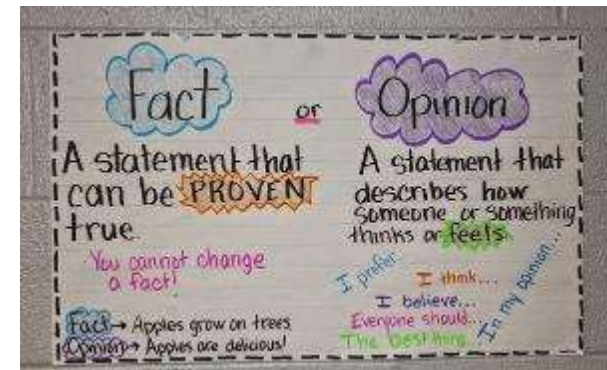 Fact
or
Opinion
A statement that
can be PROVEN
true.
You cannot change
a fact!
Fact → Apples grow on trees
Opinion → Apples are delicious!
A statement that
describes how
someone or something
thinks or feels.
I prefer
I think...
I believe...
Everyone should...
The best thing...
In my opinion...